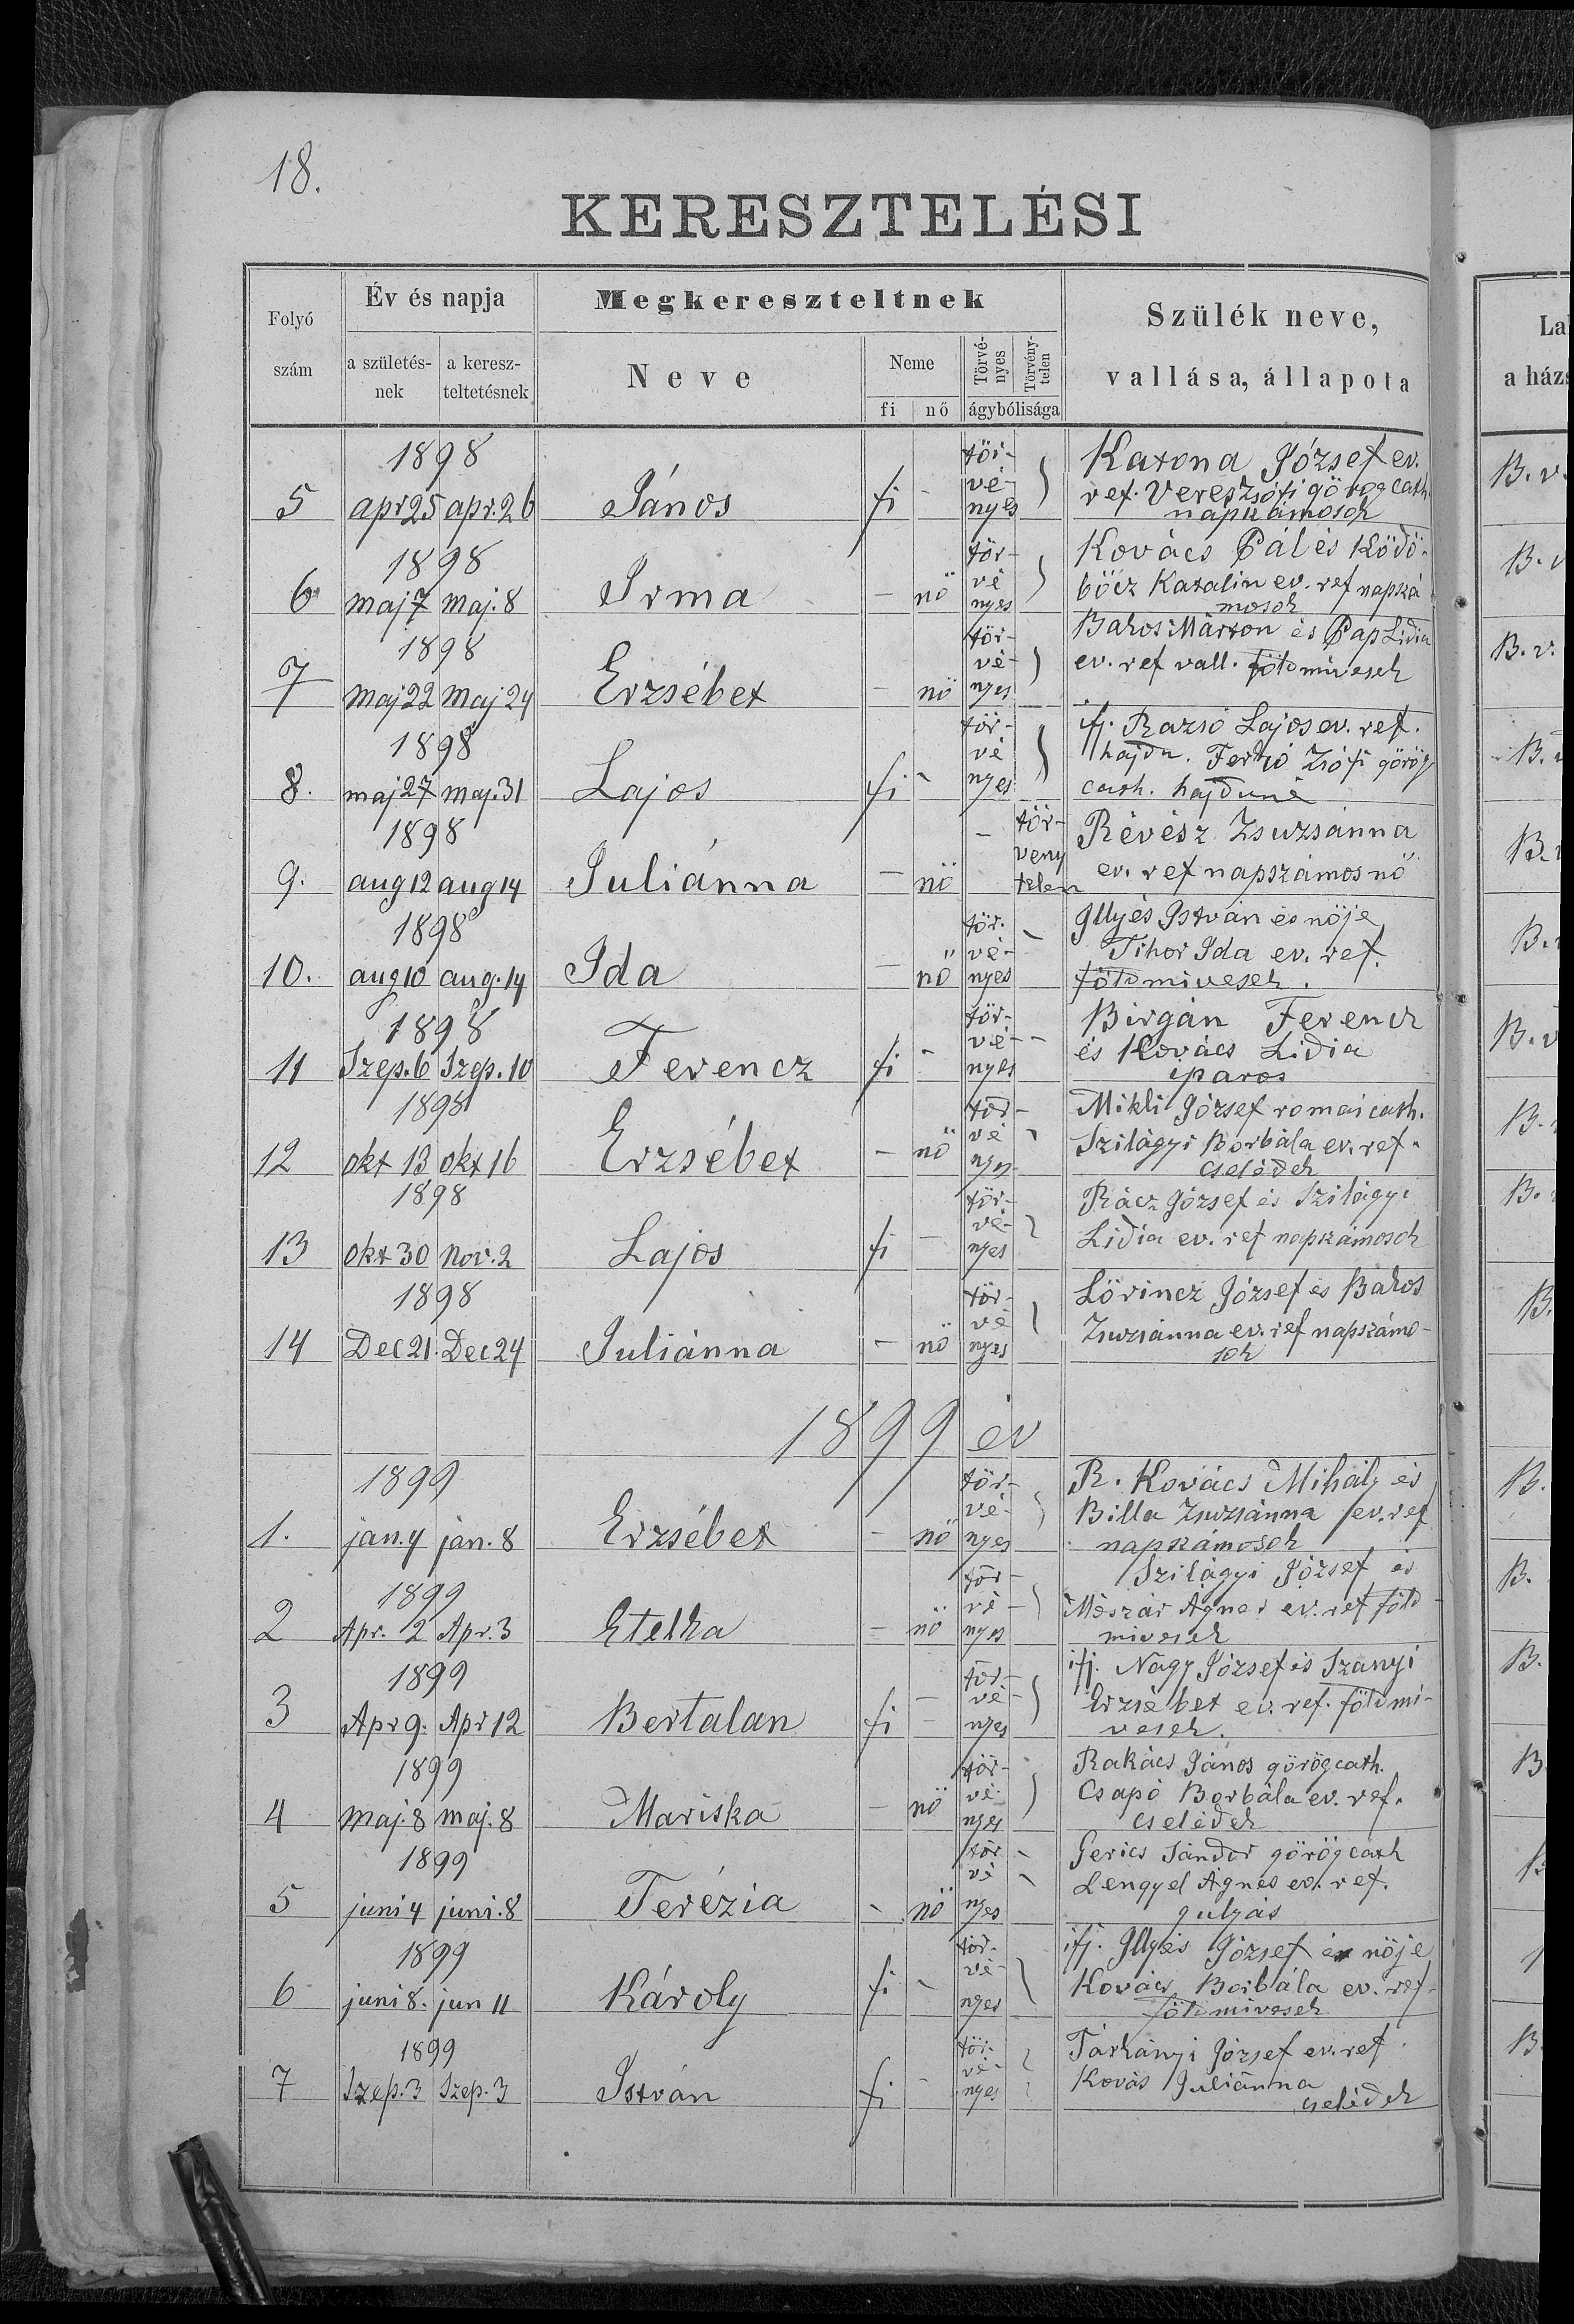 18.
KERESZTELÉSI
Folyó szám
Év és napja
a születés-nek
a keresz-teltetésnek
Megkereszteltnek
Neve
Neme
fi
nő
Törvé-nyes
Törvény-telen
ágybólisága
Szülék neve,
vallása, állapota
La
a házs
1898
5 apr 25 apr. 26 János fi - tör-vé-nyes
Katona József ev.
ref. Veres Zsófi görog cath
napzámosok
B. v.
1898
6 maj 7 maj. 8 Irma - nö tör-vé nyes
Kovács Pál és Ködö-
böcz Katalin ev. ref napszá
mosok
B. v
1898
7 maj 22 maj 24 Erzsébet - nö tör-vé-nyes
Bakos Márton és Pap Lidia
ev. ref vall. földmivesek
B. v.
1898
8. maj 27 maj. 31 Lajos fi - tör-vé nyes
ifj. Razsó Lajos ev. ref.
hajdu. Zsófi görög
cath. hajduné
B.
1898
9. aug 12 aug 14 Juliánna - nö - tör-veny telen
Révész Zsuzsánna
ev. ref napszámos nö
B.
1898
10. aug 10 aug. 14 Ida - nö tör-vé-nyes
Illyés István és nöje
Tikor Ida ev. ref.
földmivesek.
B.
1898
11 Szep. 6 Szep. 10 Ferencz fi - tör-vé-nyes
Birgán Ferencz
és Kovács Lidia
iparos
B. v
1898
12 okt 13 okt 16 Erzsébet - nö tör-vé nyes
Mikli József romai cath.
Szilágyi Borbála ev. ref.
cselédek
B.
1898
13 okt 30 nov. 2 Lajos fi - tör-vé-nyes
Rácz József és Szilágyi
Lidia ev. ref napzámosok
B.
1898
14 Dec 21. Dec 24 Juliánna - nö tör-vé nyes
Lörincz József és Bakos
Zsuzsánna ev. ref napszámo-
sok
B.
1899 év
1899
1. jan. 4 jan. 8 Erzsébet - nö tör-vé-nyes
R. Kovács Mihály és
Billa Zsuzsánna ev. ref
napszámosok
B.
1899
2 Apr. 2 Apr. 3 Etelka - nö tör-vé-nyes
Szilágyi József és
Mészár Ágnes ev. ref föld
mivesek
B.
1899
3 Apr 9. Apr 12 Bertalan fi - tör-vé-nyes
ifj. Nagy József és Szanyi
Erzsébet ev. ref. földmi-
vesek.
B.
1899
4 maj. 8 maj. 8 Mariska - nö tör-vé-nyes
Rakács János görög cath.
Csapó Borbála ev. ref.
cselédek
B
1899
5 juni 4 juni. 8 Terézia - nö tör-vé nyes
Gerics Sándor görög cath
Lengyel Ágnes ev. ref.
gulyás
1899
6 juni 8. jun 11 Károly fi - tör-vé-nyes
ifj. Illyés József és nöje
Kovács Borbála ev. ref.
földmivesek
1899
7 Szep. 3 Szep. 3 István fi - tör-vé-nyes
Tárkányi József ev. ref.
Kovás Juliánna
cselédek
B.